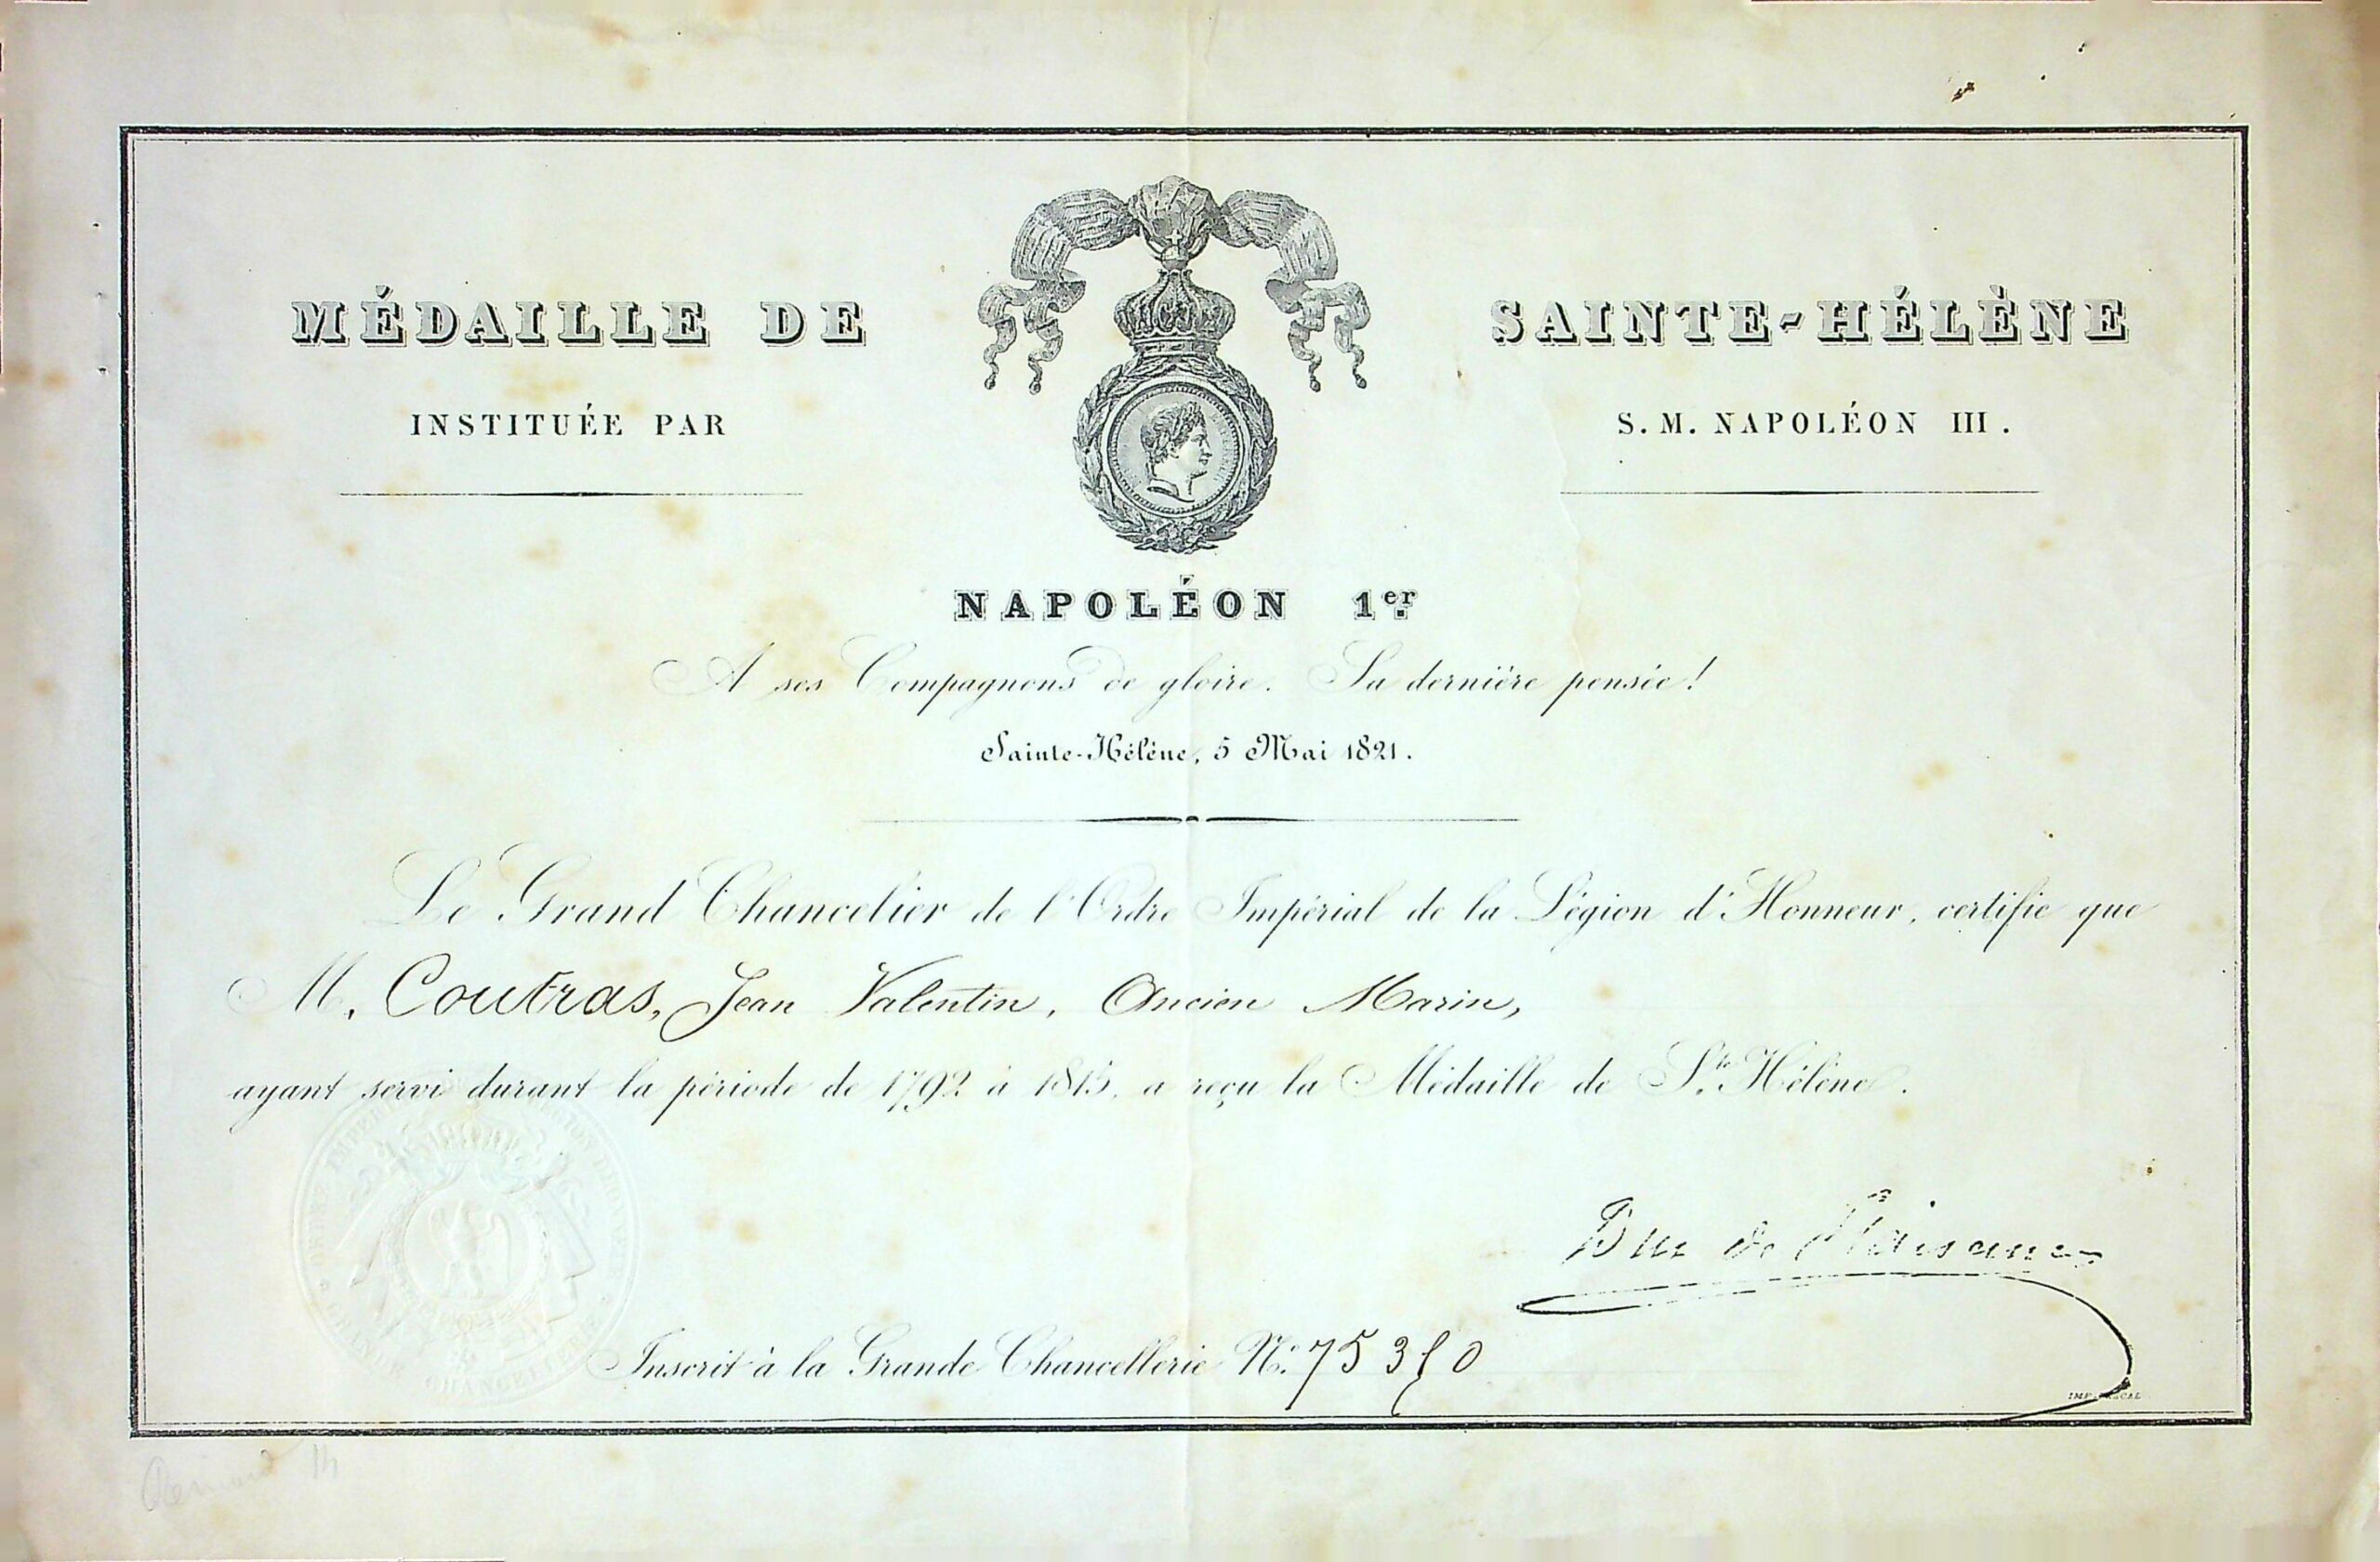 MÉDAILLE DE SAINTE-HÉLÈNE
INSTITUÉE PAR S. M. NAPOLÉON III.
NAPOLÉON 1er
A ses Compagnons de gloire. Sa dernière pensée!
Sainte-Hélène, 5 Mai 1821.
Le Grand Chancelier de l'Ordre Impérial de la Légion d'Honneur, certifie que
M. Coutras, Jean Valentin, Ancien Marin,
ayant servi durant la période de 1792 à 1815, a reçu la Médaille de Ste Hélène.
Duc de Plaisance
Inscrit à la Grande Chancellerie No. 75